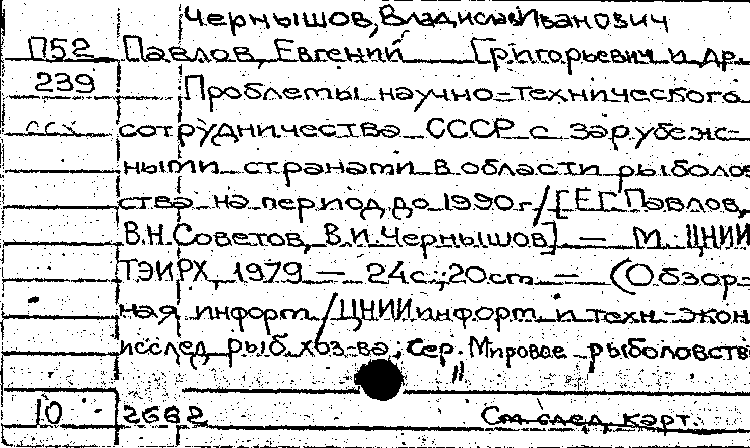 Чернышов, Владислав Иванович
П52 Павлов, Евгений Григорьевич и др.
239 Проблемы научно-технического
сотрудничества СССР с зарубеж-
ными странами в области рыболов
ства на период до 1990 г / [Е.Г. Павлов,
В.Н. Советов, В.И. Чернышов] — М. ЦНИИ
ТЭИРХ, 1979 — 24 с.; 20 см — (Обзор-
ная информ / ЦНИИ информ и техн.-экон
исслед. рыб. хоз-ва; Сер. Мировое рыболовств
10 2662 См след. карт.